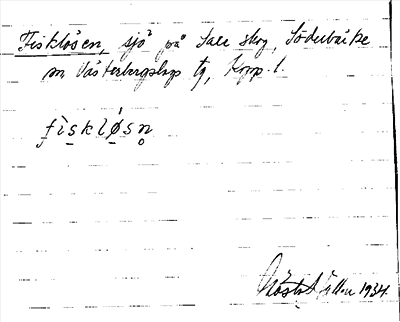 Fisklösen, sjö på Sala skog, Söderbärke
sn Västerbergslags tg, Kopp. l.
fìsklǿsn̥
Gösta 1934